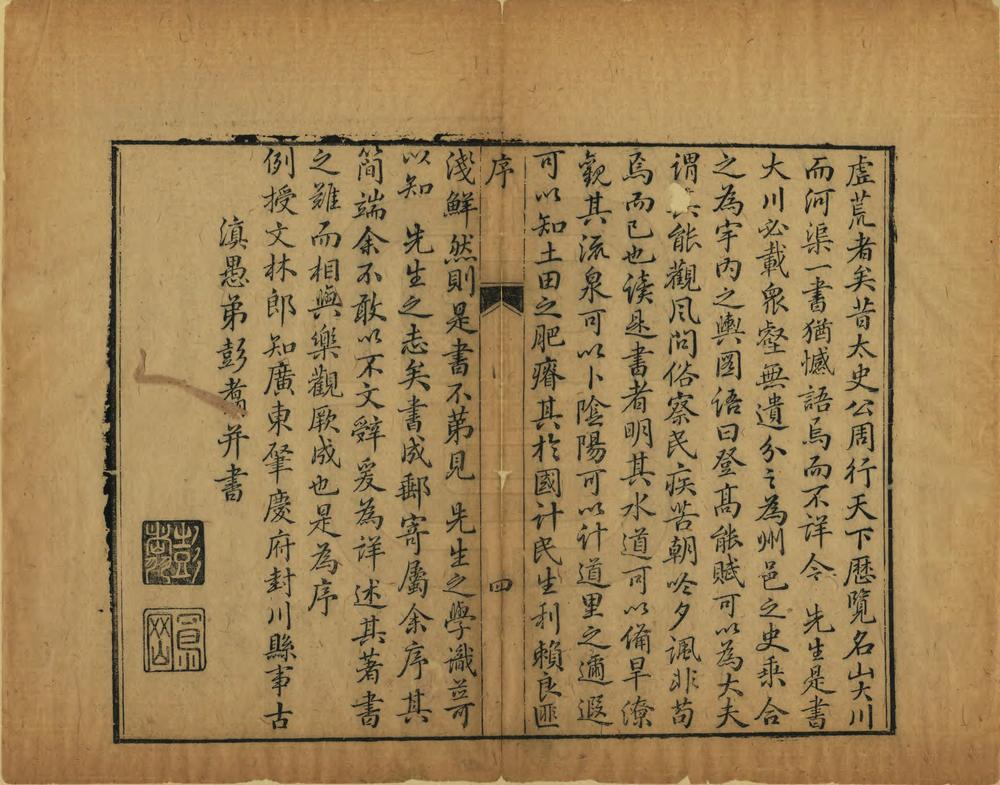 虛荒者矣昔太史公周行天下歷覽名山大川
而河渠一書猶憾語焉而不詳今 先生是書
大川必載衆壑無遺分之為州邑之史乘合
之為宇內之輿圖語曰登高能賦可以為大夫
謂其能觀風問俗察民疾苦朝吟夕諷非苟
焉而已也讀是書者明其水道可以備旱潦
觀其流泉可以卜陰陽可以計道里之邇遐
可以知土田之肥瘠其於國計民生利賴良匪
序
四
淺鮮然則是書不第見 先生之學識並可
以知 先生之志矣書成郵寄屬余序其
簡端余不敢以不文辭爰為詳述其著書
之難而相與樂觀厥成也是為序
例授文林郎知廣東肇慶府封川縣事古
滇愚弟彭翥并書
彭翥